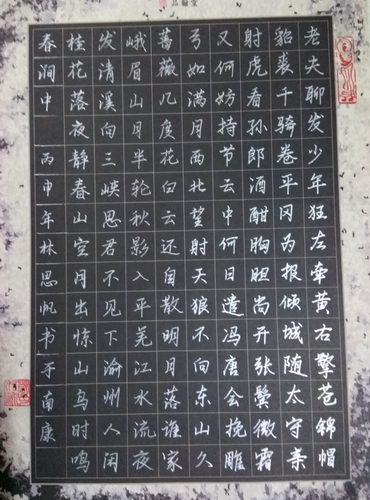 老夫聊发少年狂左牵黄右擎苍锦帽
貂裘千骑卷平冈为报倾城随太守亲
射虎看孙郎酒酣胸胆尚开张鬓微霜
又何妨持节云中何日遣冯唐会挽雕
弓如满月西北望射天狼不向东山久
蔷薇几度花白云还自散明月落谁家
峨眉山月半轮秋影入平羌江水流夜
发清溪向三峡思君不见下渝州人闲
桂花落夜静春山空月出惊山鸟时鸣
春涧中 丙申年林思帆书于南康